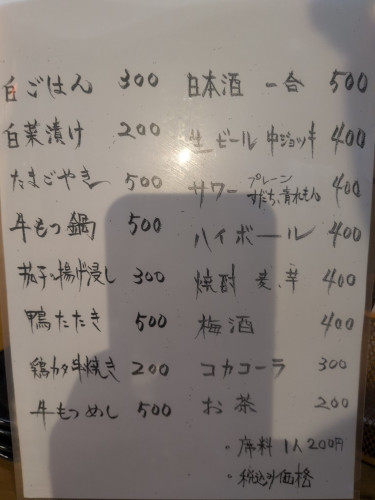 白ごはん 300
白菜漬け 200
たまごやき 500
牛もつ鍋 500
茄子の揚げ浸し 300
鴨たたき 500
鶏カタ串焼き 200
牛もつめし 500
日本酒 一合 500
生ビール 中ジョッキ 400
サワー プレーン すだち、青れもん 400
ハイボール 400
焼酎 麦、芋 400
梅酒 400
コカコーラ 300
お茶 200
・席料 1人200円
・税込み価格